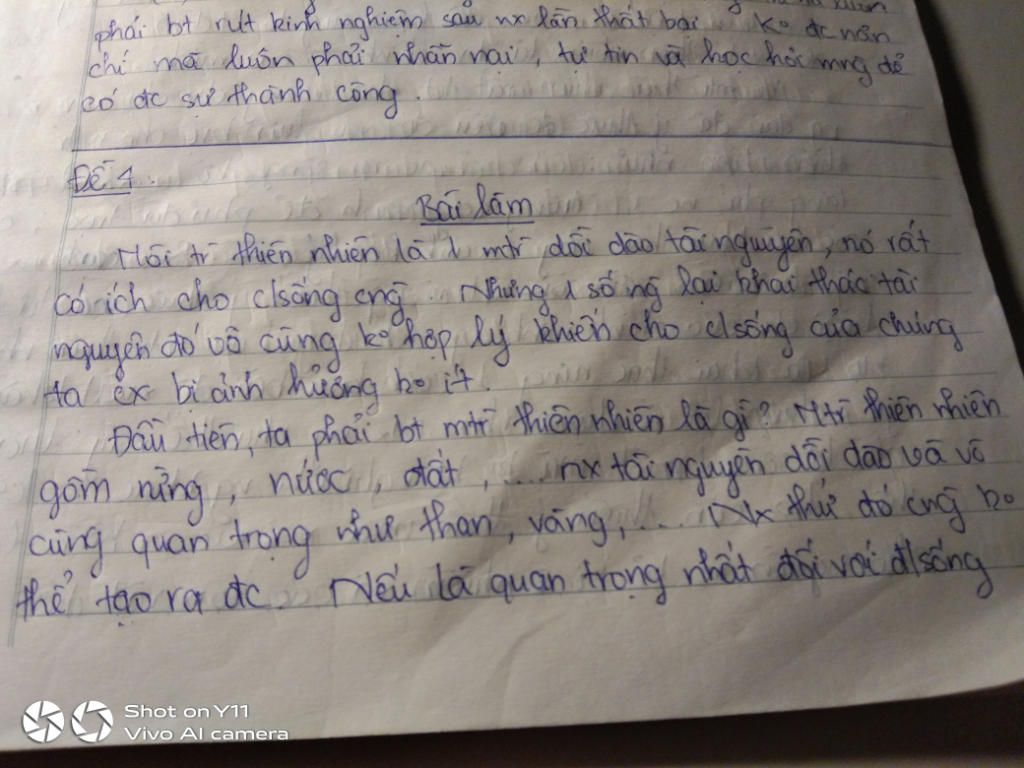 phải bt rút kinh nghiệm sau nx lần thất bại. Ko đc nản
chí mà luôn phải nhẫn nại, tự tin và học hỏi mng để
có đc sự thành công.
Đề 4.
Bài làm
Môi tr thiên nhiên là 1 mtr dồi dào tài nguyên, nó rất
có ích cho c/sống cng. Nhưng 1 số ng lại khai thác tài
nguyên đó vô cùng ko hợp lý khiến cho c/sống của chúng
ta cx bị ảnh hưởng ko ít.
Đầu tiên, ta phải bt mtr thiên nhiên là gì? Mtr thiên nhiên
gồm rừng, nước, đất, ... nx tài nguyên dồi dào và vô
cùng quan trọng như than, vàng, ... Nx thứ đó cng ko
thể tạo ra đc. Nếu là quan trọng nhất đối với đ/sống
Shot on Y11
Vivo AI camera